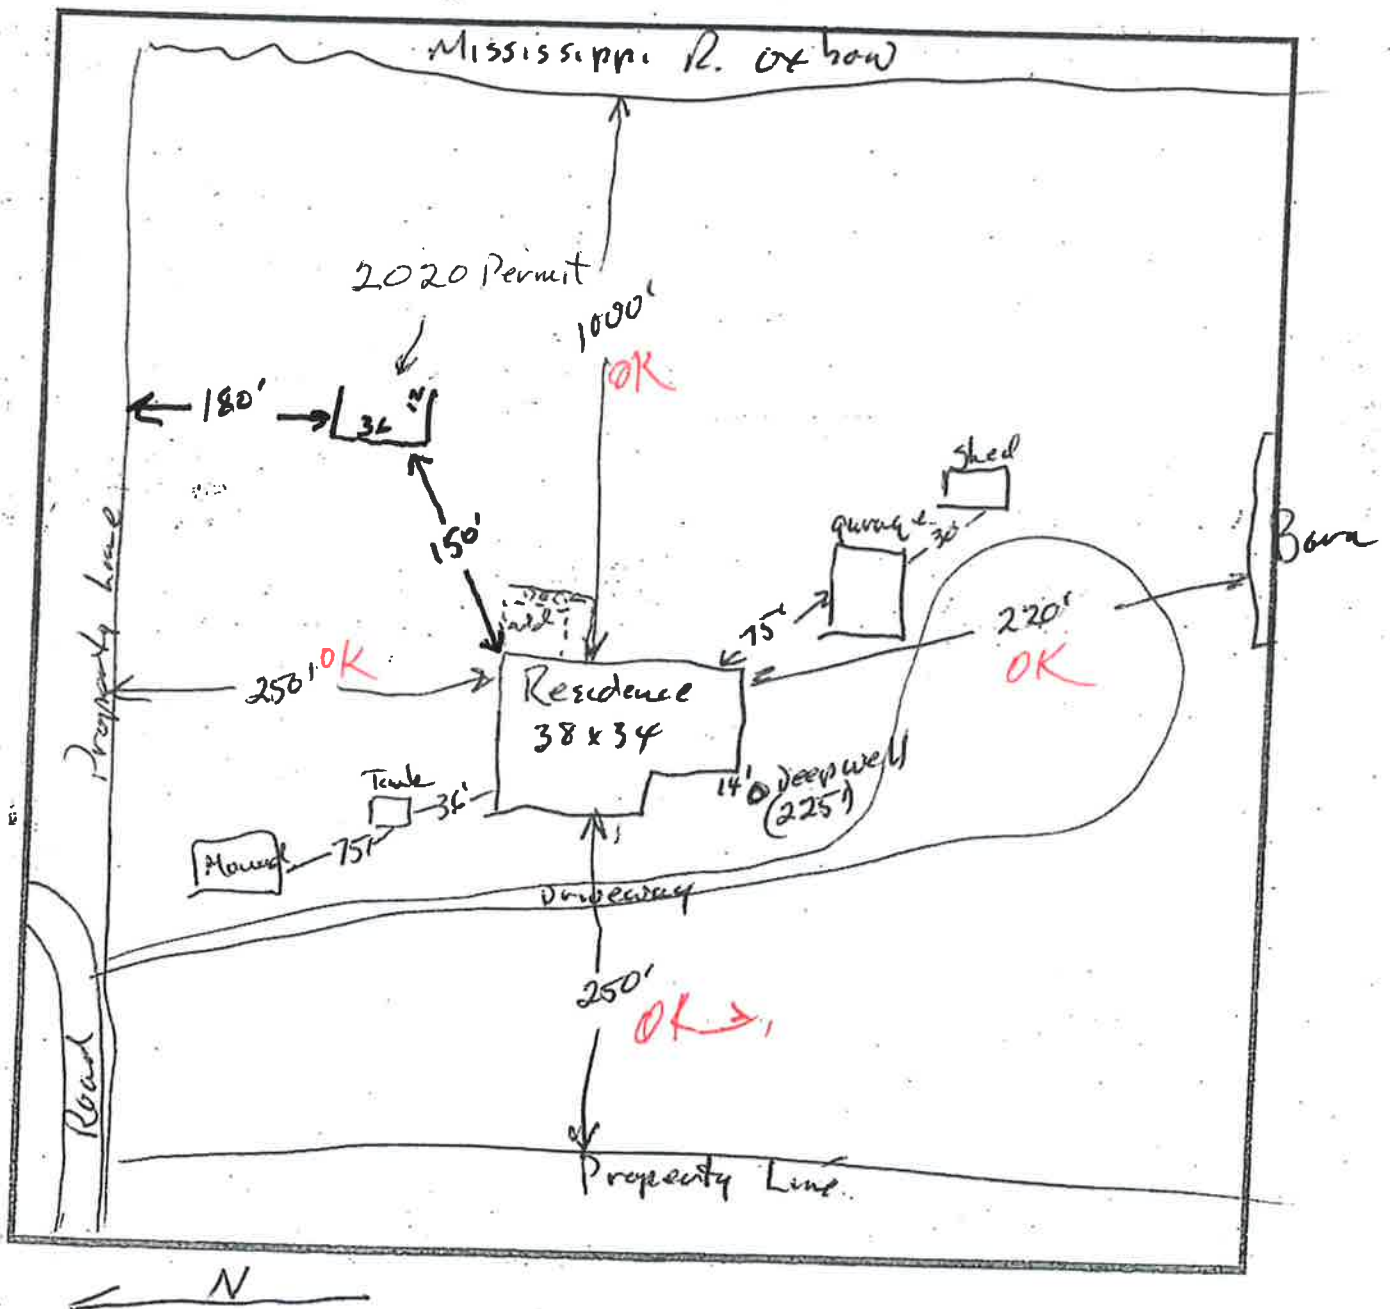 Mississippi R. oxbow
2020 Permit
1000'
OK
180'
36
12
150'
Shed
garage
30'
Barn
75'
220'
OK
add
Property Line
250' OK
Residence
38 x 34
Tank
36'
14' Deepwell
(225')
Mound
75'
Driveway
250'
OK
Road
Property Line
N